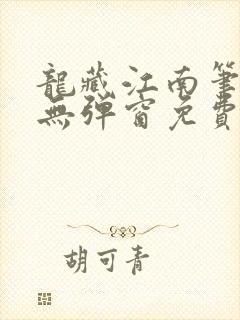 龍藏江南筆
無彈窗免費
胡可青